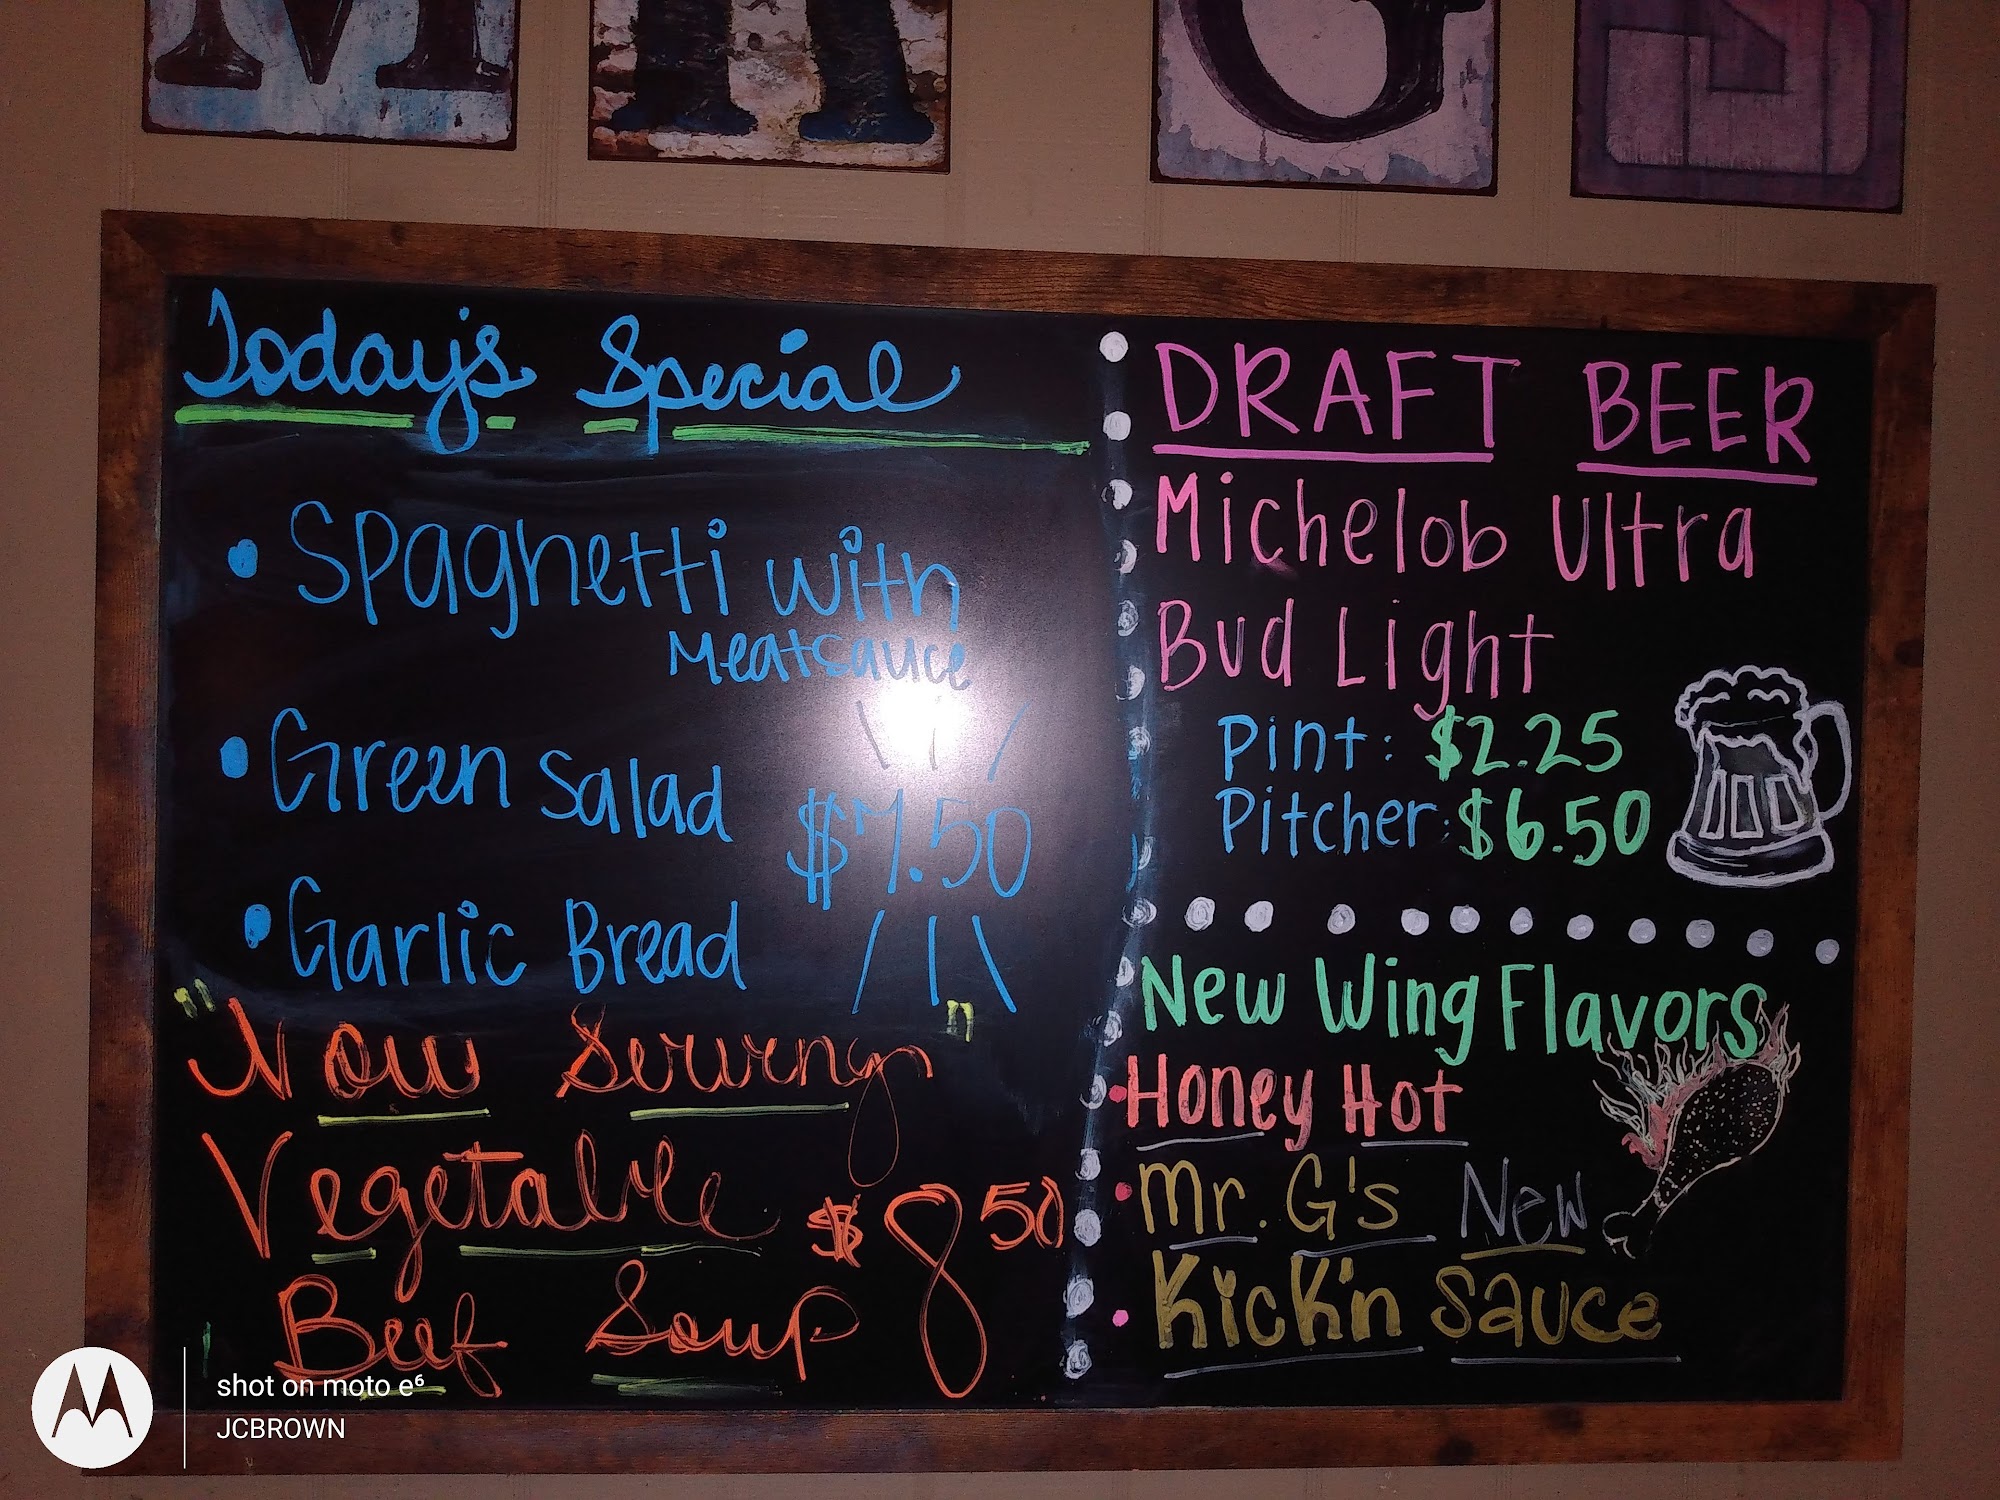 M R G S
Today's Special
• Spaghetti with
Meatsauce
• Green Salad
$7.50
• Garlic Bread
"Now Serving"
Vegetable
$8.50
Beef Soup
DRAFT BEER
Michelob Ultra
Bud Light
Pint: $2.25
Pitcher: $6.50
New Wing Flavors
• Honey Hot
• Mr. G's New
• Kick'n Sauce
shot on moto e⁶
JCBROWN